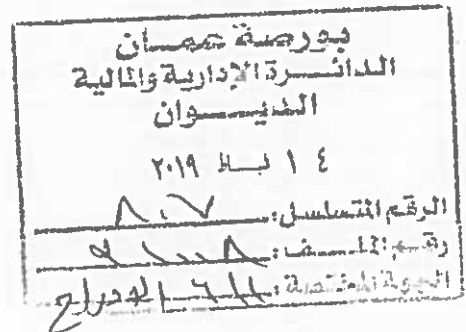 بورصة عمان
الدائرة الإدارية والمالية
الديوان
١٤ شباط ٢٠١٩
الرقم المتسلسل: ٨٠٧
رقم الملف:
الجهة المختصة: الإدراج